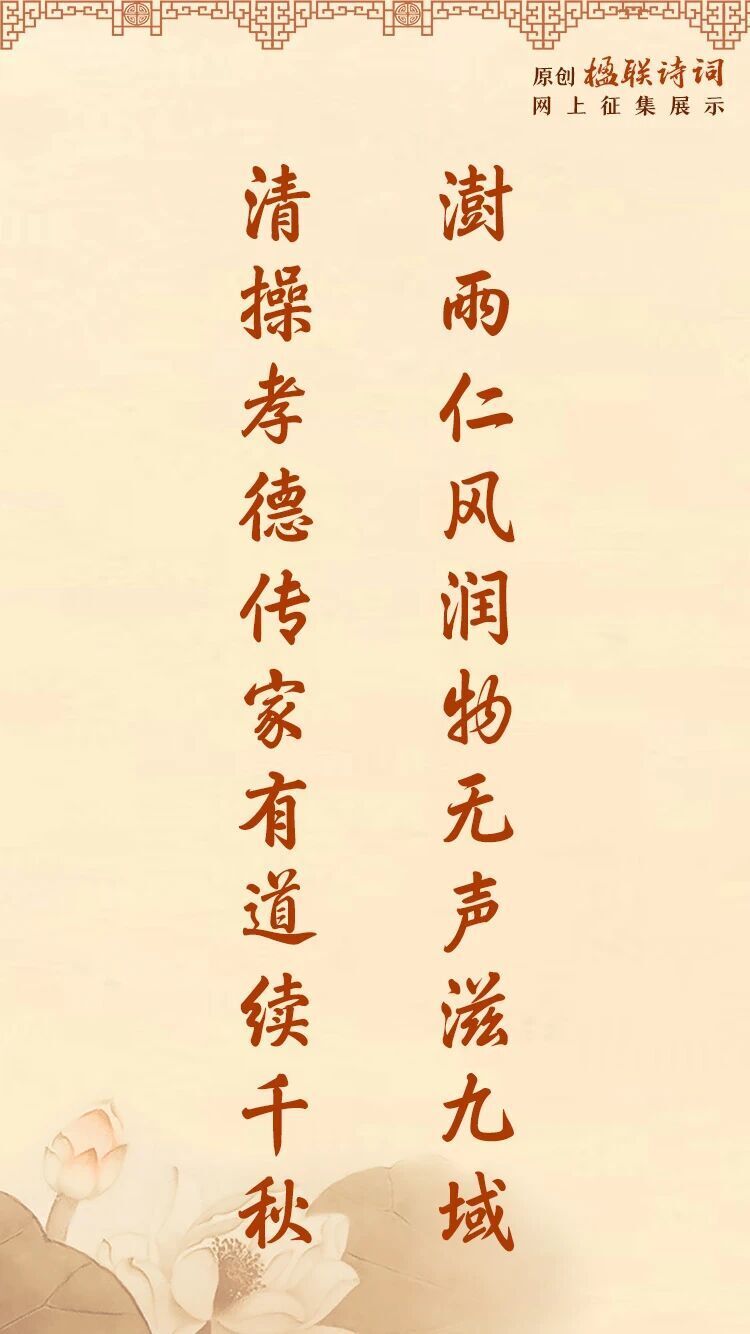 原创楹联诗词
网上征集展示
澍雨仁风润物无声滋九域
清操孝德传家有道续千秋